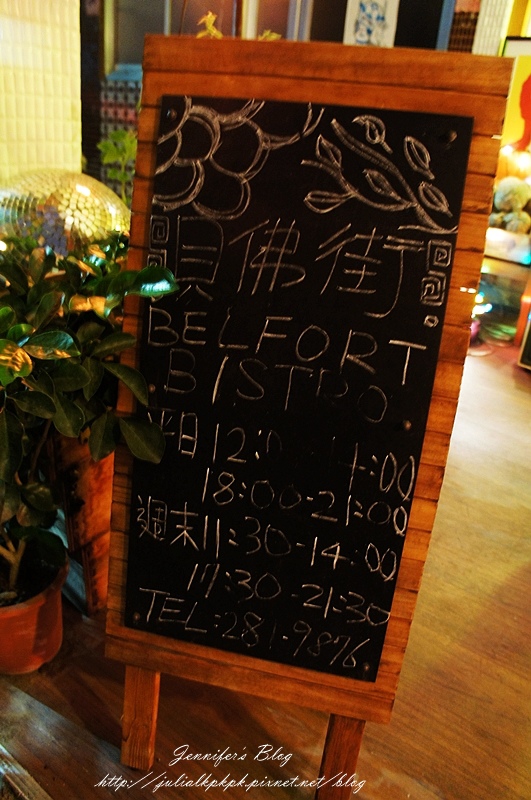 貝佛街
BELFORT
BISTRO
平日 12:0 14:00
18:00-21:00
週末 11:30-14:00
17:30-21:30
TEL:281-9876
Jennifer's Blog
http://julialkpkpk.pixnet.net/blog